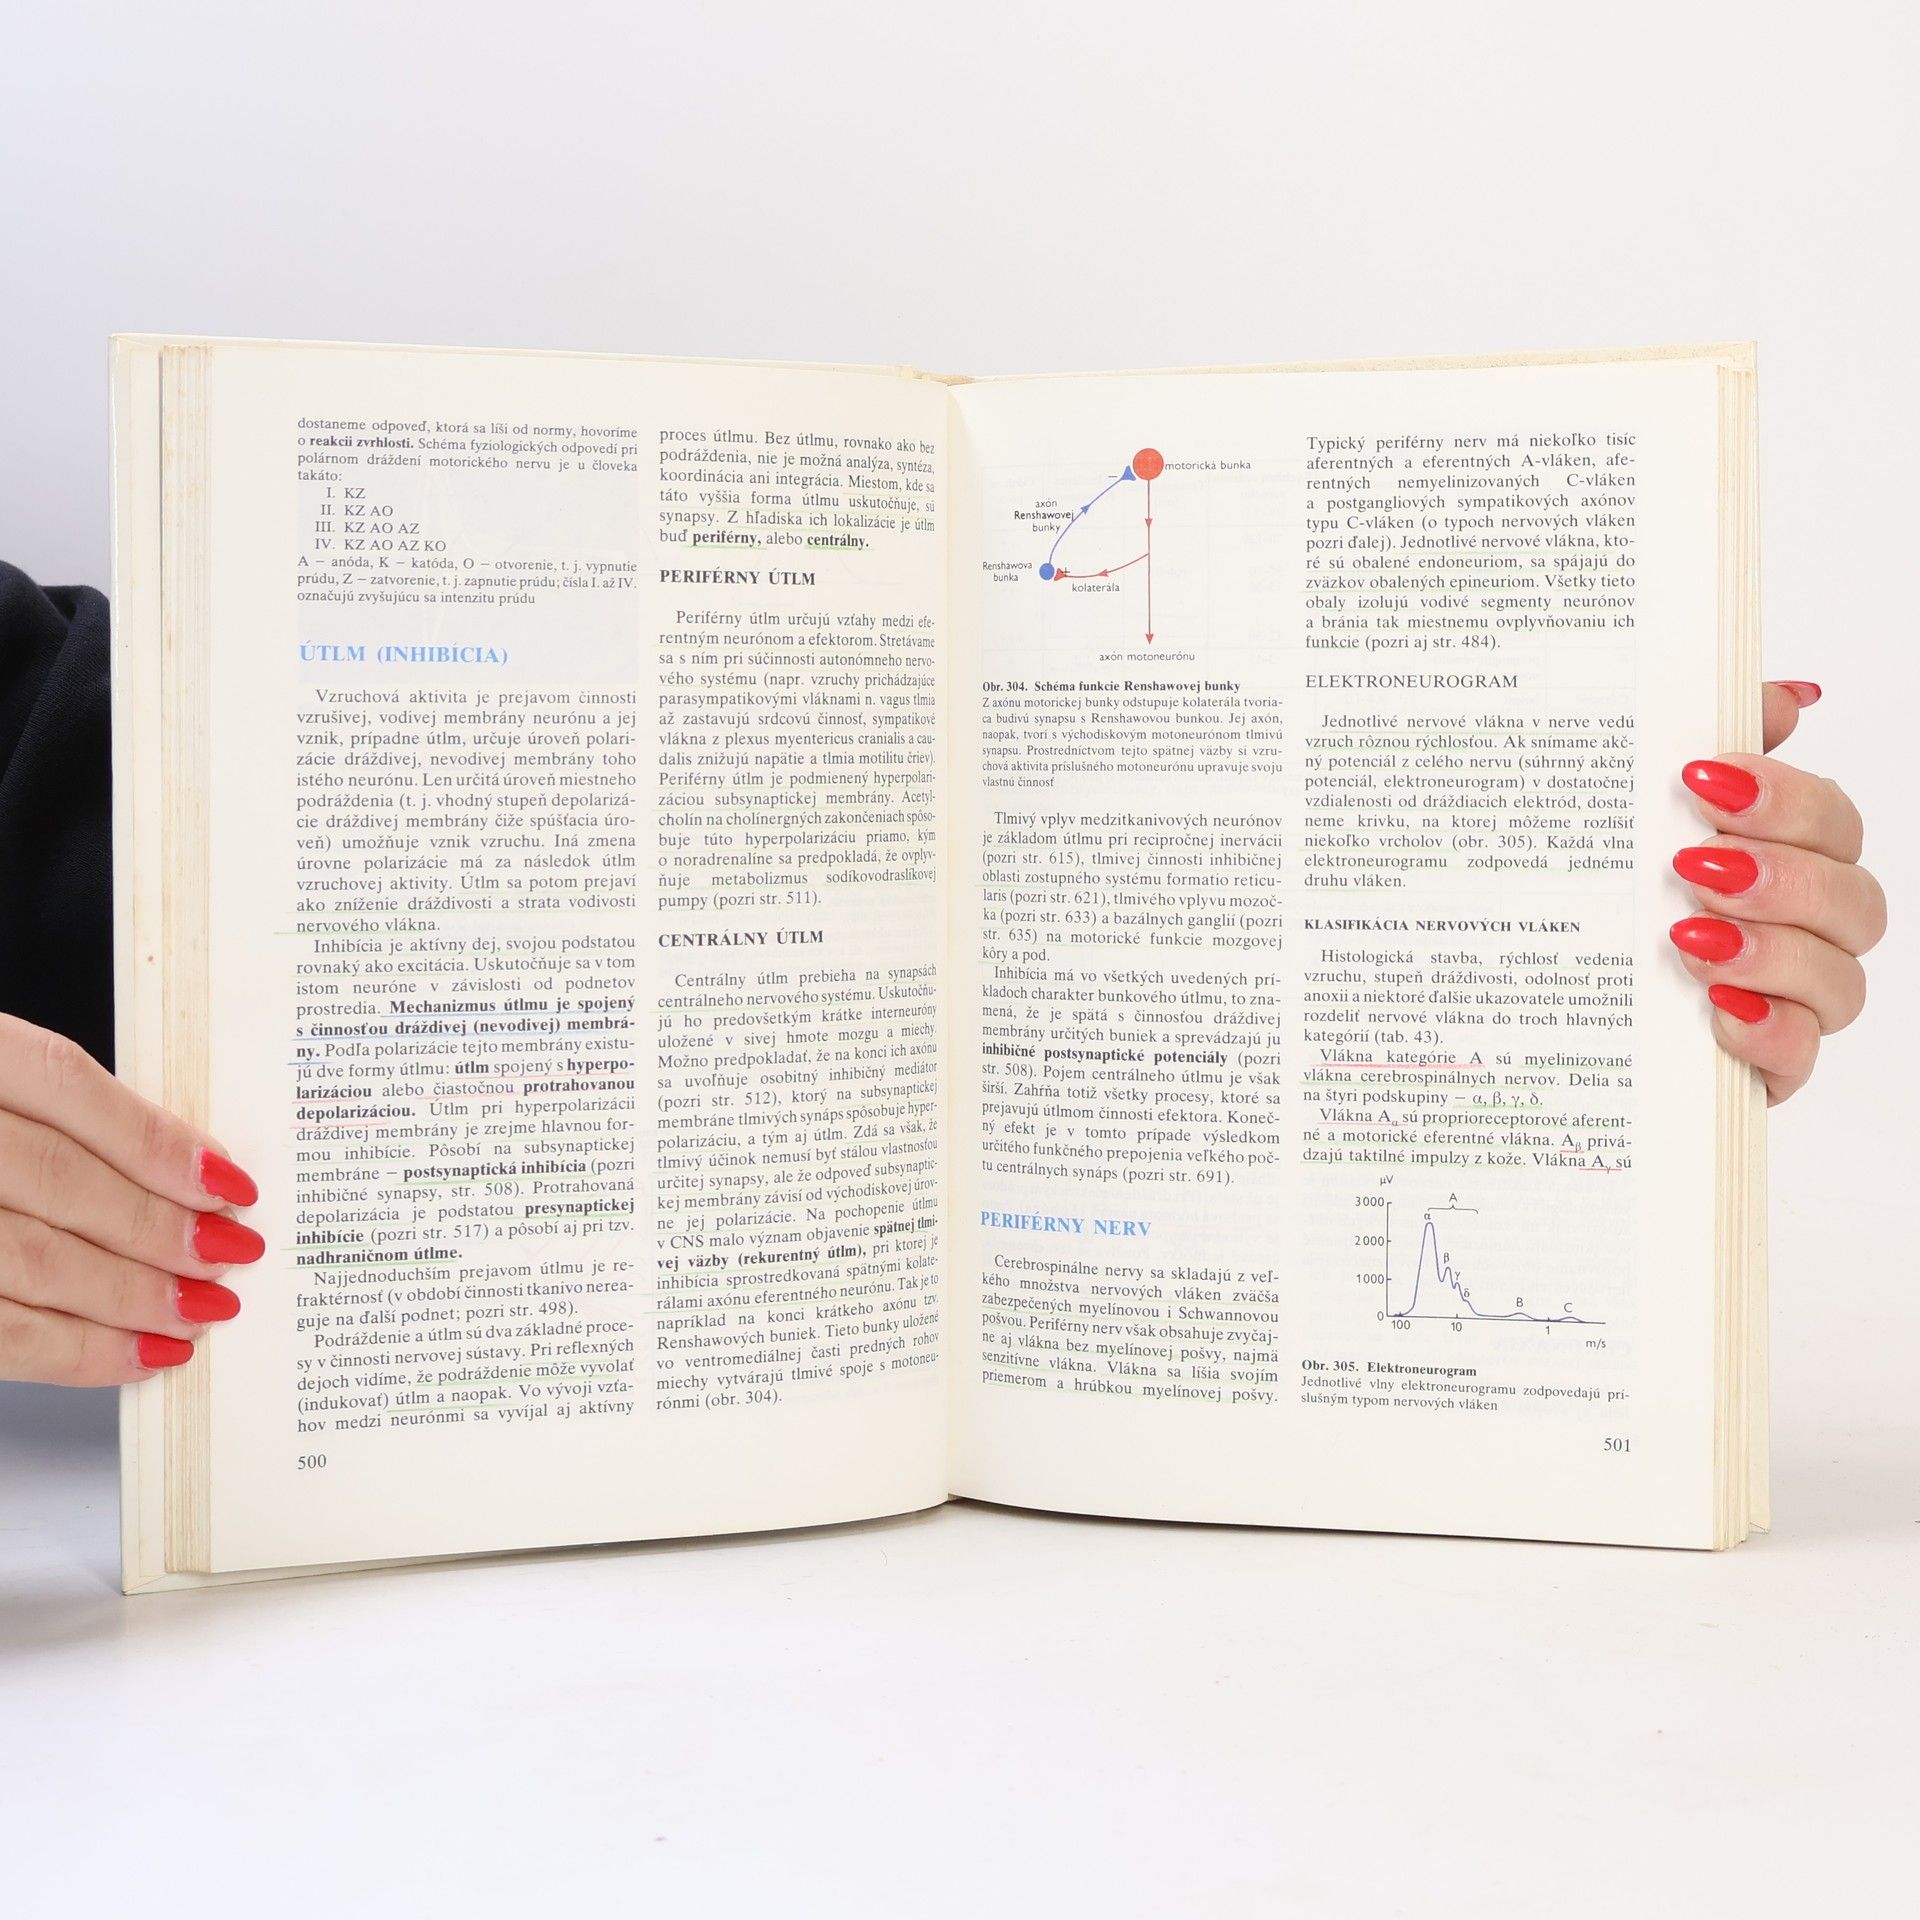 dostaneme odpoveď, ktorá sa líši od normy, hovoríme
o reakcii zvrhlosti. Schéma fyziologických odpovedí pri
polárnom dráždení motorického nervu je u človeka
takáto:
I. KZ
II. KZ AO
III. KZ AO AZ
IV. KZ AO AZ KO
A – anóda, K – katóda, O – otvorenie, t. j. vypnutie
prúdu, Z – zatvorenie, t. j. zapnutie prúdu; čísla I. až IV.
označujú zvyšujúcu sa intenzitu prúdu
ÚTLM (INHIBÍCIA)
Vzruchová aktivita je prejavom činnosti
vzrušivej, vodivej membrány neurónu a jej
vznik, prípadne útlm, určuje úroveň polari-
zácie dráždivej, nevodivej membrány toho
istého neurónu. Len určitá úroveň miestneho
podráždenia (t. j. vhodný stupeň depolarizá-
cie dráždivej membrány čiže spúšťacia úro-
veň) umožňuje vznik vzruchu. Iná zmena
úrovne polarizácie má za následok útlm
vzruchovej aktivity. Útlm sa potom prejaví
ako zníženie dráždivosti a strata vodivosti
nervového vlákna.
Inhibícia je aktívny dej, svojou podstatou
rovnaký ako excitácia. Uskutočňuje sa v tom
istom neuróne v závislosti od podnetov
prostredia. Mechanizmus útlmu je spojený
s činnosťou dráždivej (nevodivej) membrá-
ny. Podľa polarizácie tejto membrány existu-
jú dve formy útlmu: útlm spojený s hyperpo-
larizáciou alebo čiastočnou protrahovanou
depolarizáciou. Útlm pri hyperpolarizácii
dráždivej membrány je zrejme hlavnou for-
mou inhibície. Pôsobí na subsynaptickej
membráne – postsynaptická inhibícia (pozri
inhibičné synapsy, str. 508). Protrahovaná
depolarizácia je podstatou presynaptickej
inhibície (pozri str. 517) a pôsobí aj pri tzv.
nadhraničnom útlme.
Najjednoduchším prejavom útlmu je re-
fraktérnosť (v období činnosti tkanivo nerea-
guje na ďalší podnet; pozri str. 498).
Podráždenie a útlm sú dva základné proce-
sy v činnosti nervovej sústavy. Pri reflexných
dejoch vidíme, že podráždenie môže vyvolať
(indukovať) útlm a naopak. Vo vývoji vzťa-
hov medzi neurónmi sa vyvíjal aj aktívny
500
proces útlmu. Bez útlmu, rovnako ako bez
podráždenia, nie je možná analýza, syntéza,
koordinácia ani integrácia. Miestom, kde sa
táto vyššia forma útlmu uskutočňuje, sú
synapsy. Z hľadiska ich lokalizácie je útlm
buď periférny, alebo centrálny.
PERIFÉRNY ÚTLM
Periférny útlm určujú vzťahy medzi efe-
rentným neurónom a efektorom. Stretávame
sa s ním pri súčinnosti autonómneho nervo-
vého systému (napr. vzruchy prichádzajúce
parasympatikovými vláknami n. vagus tlmia
až zastavujú srdcovú činnosť, sympatikové
vlákna z plexus myentericus cranialis a cau-
dalis znižujú napätie a tlmia motilitu čriev).
Periférny útlm je podmienený hyperpolari-
záciou subsynaptickej membrány. Acetyl-
cholín na cholínergných zakončeniach spôso-
buje túto hyperpolarizáciu priamo, kým
o noradrenalíne sa predpokladá, že ovplyv-
ňuje metabolizmus sodíkovodraslíkovej
pumpy (pozri str. 511).
CENTRÁLNY ÚTLM
Centrálny útlm prebieha na synapsách
centrálneho nervového systému. Uskutočňu-
jú ho predovšetkým krátke interneuróny
uložené v sivej hmote mozgu a miechy.
Možno predpokladať, že na konci ich axónu
sa uvoľňuje osobitný inhibičný mediátor
(pozri str. 512), ktorý na subsynaptickej
membráne tlmivých synáps spôsobuje hyper-
polarizáciu, a tým aj útlm. Zdá sa však, že
tlmivý účinok nemusí byť stálou vlastnosťou
určitej synapsy, ale že odpoveď subsynaptic-
kej membrány závisí od východiskovej úrov-
ne jej polarizácie. Na pochopenie útlmu
v CNS malo význam objavenie spätnej tlmi-
vej väzby (rekurentný útlm), pri ktorej je
inhibícia sprostredkovaná spätnými kolate-
rálami axónu eferentného neurónu. Tak je to
napríklad na konci krátkeho axónu tzv.
Renshawových buniek. Tieto bunky uložené
vo ventromediálnej časti predných rohov
miechy vytvárajú tlmivé spoje s motoneu-
rónmi (obr. 304).
motorická bunka
–
axón
Renshawovej
bunky
Renshawova
bunka
+
kolaterála
axón motoneurónu
Obr. 304. Schéma funkcie Renshawovej bunky
Z axónu motorickej bunky odstupuje kolaterála tvoria-
ca budivú synapsu s Renshawovou bunkou. Jej axón,
naopak, tvorí s východiskovým motoneurónom tlmivú
synapsu. Prostredníctvom tejto spätnej väzby si vzru-
chová aktivita príslušného motoneurónu upravuje svoju
vlastnú činnosť
Tlmivý vplyv medzitkanivových neurónov
je základom útlmu pri recipročnej inervácii
(pozri str. 615), tlmivej činnosti inhibičnej
oblasti zostupného systému formatio reticu-
laris (pozri str. 621), tlmivého vplyvu mozoč-
ka (pozri str. 633) a bazálnych ganglií (pozri
str. 635) na motorické funkcie mozgovej
kôry a pod.
Inhibícia má vo všetkých uvedených prí-
kladoch charakter bunkového útlmu, to zna-
mená, že je spätá s činnosťou dráždivej
membrány určitých buniek a sprevádzajú ju
inhibičné postsynaptické potenciály (pozri
str. 508). Pojem centrálneho útlmu je však
širší. Zahŕňa totiž všetky procesy, ktoré sa
prejavujú útlmom činnosti efektora. Koneč-
ný efekt je v tomto prípade výsledkom
určitého funkčného prepojenia veľkého poč-
tu centrálnych synáps (pozri str. 691).
PERIFÉRNY NERV
Cerebrospinálne nervy sa skladajú z veľ-
kého množstva nervových vláken zväčša
zabezpečených myelínovou i Schwannovou
pošvou. Periférny nerv však obsahuje zvyčaj-
ne aj vlákna bez myelínovej pošvy, najmä
senzitívne vlákna. Vlákna sa líšia svojím
priemerom a hrúbkou myelínovej pošvy.
Typický periférny nerv má niekoľko tisíc
aferentných a eferentných A-vláken, afe-
rentných nemyelinizovaných C-vláken
a postgangliových sympatikových axónov
typu C-vláken (o typoch nervových vláken
pozri ďalej). Jednotlivé nervové vlákna, kto-
ré sú obalené endoneuriom, sa spájajú do
zväzkov obalených epineuriom. Všetky tieto
obaly izolujú vodivé segmenty neurónov
a bránia tak miestnemu ovplyvňovaniu ich
funkcie (pozri aj str. 484).
ELEKTRONEUROGRAM
Jednotlivé nervové vlákna v nerve vedú
vzruch rôznou rýchlosťou. Ak snímame akč-
ný potenciál z celého nervu (súhrnný akčný
potenciál, elektroneurogram) v dostatočnej
vzdialenosti od dráždiacich elektród, dosta-
neme krivku, na ktorej môžeme rozlíšiť
niekoľko vrcholov (obr. 305). Každá vlna
elektroneurogramu zodpovedá jednému
druhu vláken.
KLASIFIKÁCIA NERVOVÝCH VLÁKEN
Histologická stavba, rýchlosť vedenia
vzruchu, stupeň dráždivosti, odolnosť proti
anoxii a niektoré ďalšie ukazovatele umožnili
rozdeliť nervové vlákna do troch hlavných
kategórií (tab. 43).
Vlákna kategórie A sú myelinizované
vlákna cerebrospinálnych nervov. Delia sa
na štyri podskupiny – α, β, γ, δ.
Vlákna Aα sú proprioreceptorové aferent-
né a motorické eferentné vlákna. Aβ privá-
dzajú taktilné impulzy z kože. Vlákna Aγ sú
μV
3000
2000
1000
0
A
α
β
γ
δ
B
C
100
10
1
m/s
Obr. 305. Elektroneurogram
Jednotlivé vlny elektroneurogramu zodpovedajú prí-
slušným typom nervových vláken
501